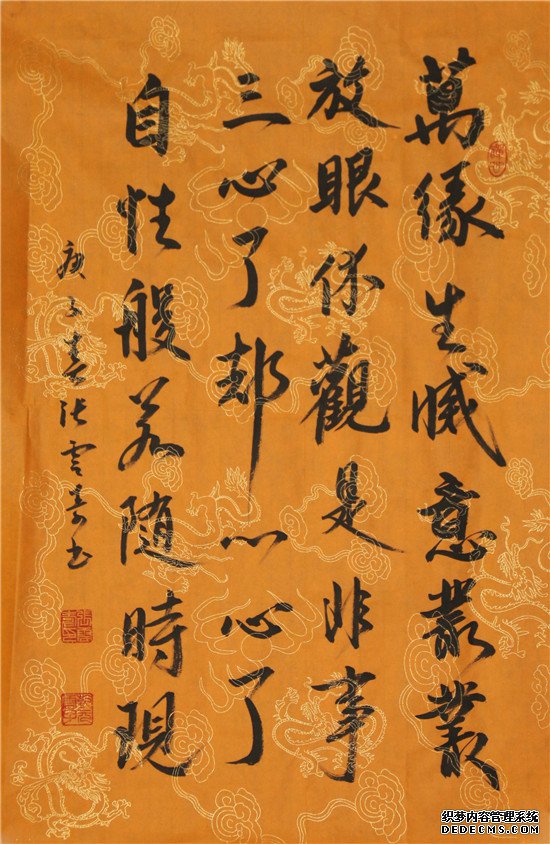 萬緣生滅意叢叢
放眼休觀是非事
三心了却一心了
自性般若隨時現
庚子春张雲书
织梦内容管理系统
DEDECMS.COM